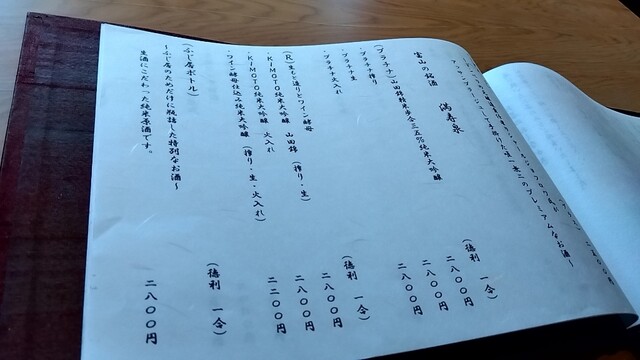 富山の銘酒　満寿泉
(プラチナ)山田錦精米歩合三五%純米大吟醸
・プラチナ搾り
・プラチナ生
・プラチナ火入れ
(徳利　一合)
二八〇〇円
二八〇〇円
二八〇〇円
(R)生もと造りとワイン酵母
・KIMOTO純米大吟醸　山田錦　(搾り・生)
・KIMOTO純米大吟醸　火入れ
・ワイン酵母仕込み純米大吟醸　(搾り・生・火入れ)
(徳利　一合)
二八〇〇円
二八〇〇円
二二〇〇円
(ふじ居ボトル)
〜ふじ居のためだけに瓶詰した特別なお酒〜
生酒にこだわった純米原酒です。
(徳利　一合)
二八〇〇円